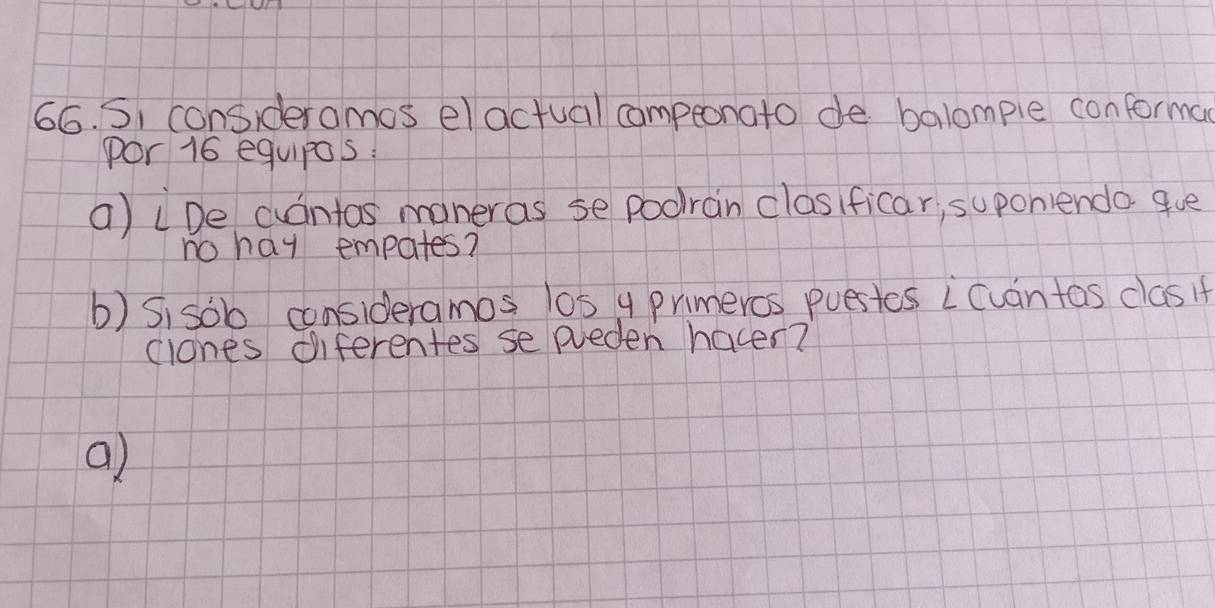 66. Si consideramos el actual campeonato de balompie conformad
por 16 equipos:
a) ¿De cuántas maneras se podrán clasificar, suponiendo que
no hay empates?
b) Si sólo consideramos los 4 primeros puestos ¿Cuántas clasif
ciones diferentes se pueden hacer?
a)